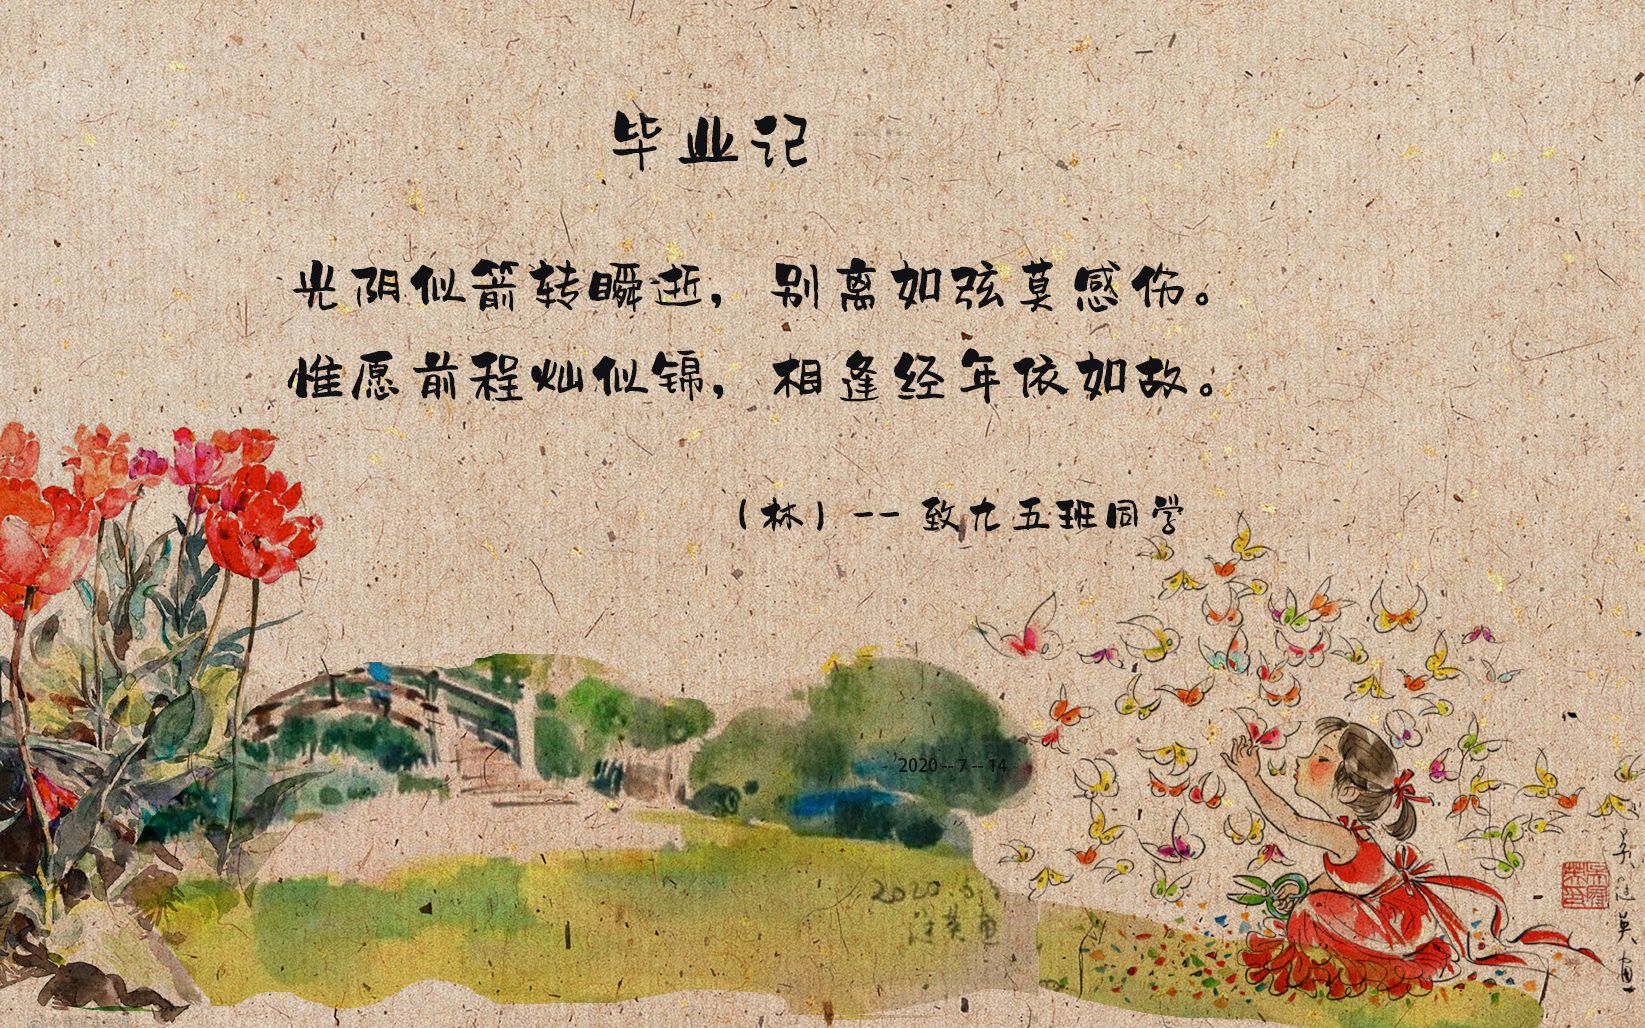 毕业记
光阴似箭转瞬逝，别离如弦莫感伤。
惟愿前程灿似锦，相逢经年依如故。
（林）-- 致九五班同学
2020--7--14